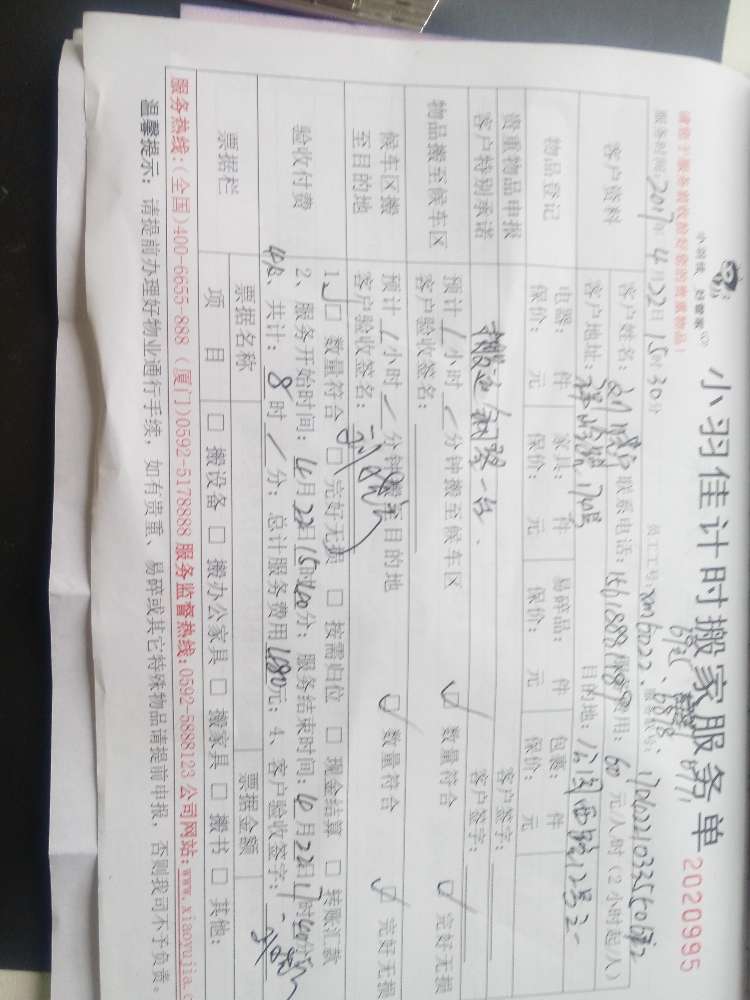 小羽佳 好管家
小羽佳计时搬家服务单 2020995
服务时间:2017年4月22日15时30分
客户资料
客户姓名: 联系电话: 60元/人/时(2小时起/人)
客户地址: 目的地:
物品登记
电器: 件 家具: 件 易碎品: 件 包裹: 件
保价: 元 保价: 元 保价: 元 保价: 元
贵重物品申报 客户签字:
客户特别承诺 搬运钢琴一台. 客户签字:
物品搬至候车区
预计1小时/分钟搬至候车区 ☑ 数量符合 ☑ 完好无损
客户验收签名:
候车区搬至目的地
预计1小时/分钟搬至目的地 ☑ 数量符合 ☑ 完好无损
客户验收签名:
验收付费
1、☐ 数量符合 ☐ 完好无损 ☐ 按需归位 ☐ 现金结算 ☐ 转账汇款
2、服务开始时间:4月22日15时40分;服务结束时间:4月22日17时40分
共计:8时/分;总计服务费用480元;4、客户验收签字:
票据栏
票据名称 票据金额
项目 ☐ 搬设备 ☐ 搬办公家具 ☐ 搬家具 ☐ 搬书 ☐ 其他:
服务热线:(全国)400-6655-888 (厦门)0592-5178888 服务监督热线:0592-5888123 公司网站:www.xiaoyujia.c
温馨提示:请提前办理好物业通行手续,如有贵重、易碎或其它特殊物品请提前申报,否则我司不予负责。